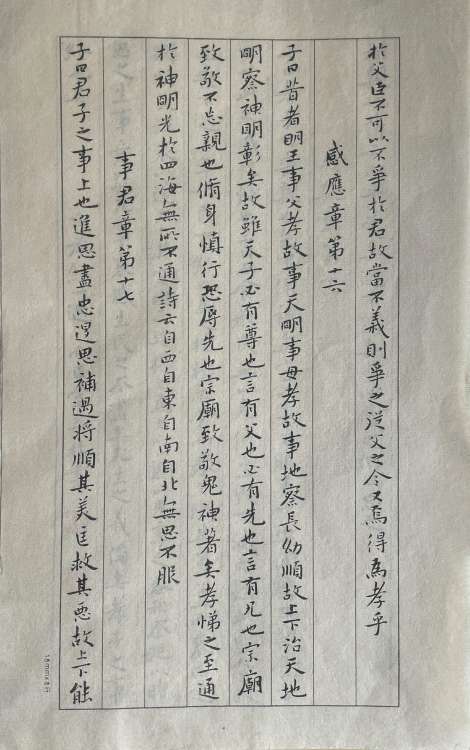 於父臣不可以不爭於君故當不義則爭之從父之令又焉得為孝乎
感應章第十六
子曰昔者明王事父孝故事天明事母孝故事地察長幼順故上下治天地
明察神明彰矣故雖天子必有尊也言有父也必有先也言有兄也宗廟
致敬不忘親也脩身慎行恐辱先也宗廟致敬鬼神著矣孝悌之至通
於神明光於四海無所不通詩云自西自東自南自北無思不服
事君章第十七
子曰君子之事上也進思盡忠退思補過將順其美匡救其惡故上下能